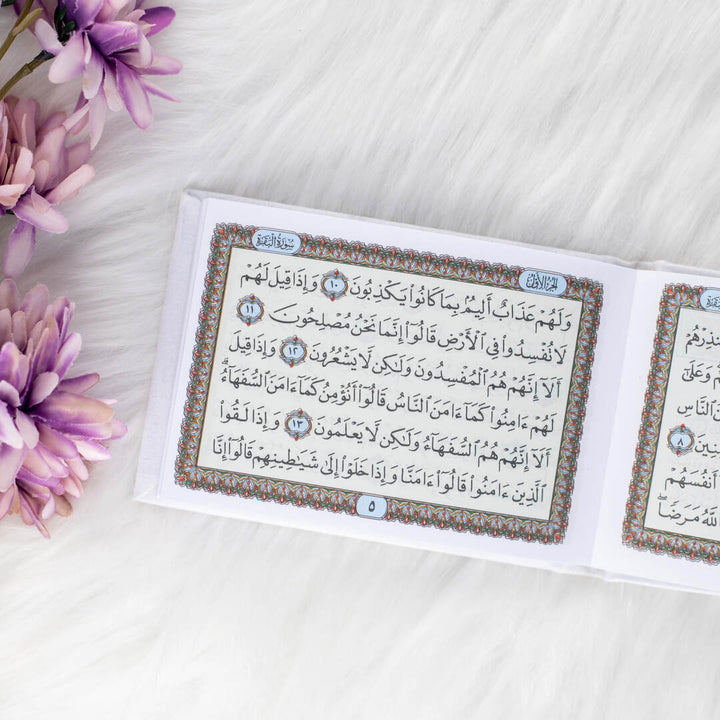 وَعَلَىٰ
ٱلنَّاسِ
٨
أَنفُسَهُمْ
ٱللَّهُ مَرَضًاۖ
الجزء الأول
سورة البقرة
وَلَهُمْ عَذَابٌ أَلِيمٌۢ بِمَا كَانُوا۟ يَكْذِبُونَ ١٠ وَإِذَا قِيلَ لَهُمْ
لَا تُفْسِدُوا۟ فِى ٱلْأَرْضِ قَالُوٓا۟ إِنَّمَا نَحْنُ مُصْلِحُونَ ١١
أَلَآ إِنَّهُمْ هُمُ ٱلْمُفْسِدُونَ وَلَـٰكِن لَّا يَشْعُرُونَ ١٢ وَإِذَا قِيلَ
لَهُمْ ءَامِنُوا۟ كَمَآ ءَامَنَ ٱلنَّاسُ قَالُوٓا۟ أَنُؤْمِنُ كَمَآ ءَامَنَ ٱلسُّفَهَآءُۗ
أَلَآ إِنَّهُمْ هُمُ ٱلسُّفَهَآءُ وَلَـٰكِن لَّا يَعْلَمُونَ ١٣ وَإِذَا لَقُوا۟
ٱلَّذِينَ ءَامَنُوا۟ قَالُوٓا۟ ءَامَنَّا وَإِذَا خَلَوْا۟ إِلَىٰ شَيَـٰطِينِهِمْ قَالُوٓا۟ إِنَّا
٥